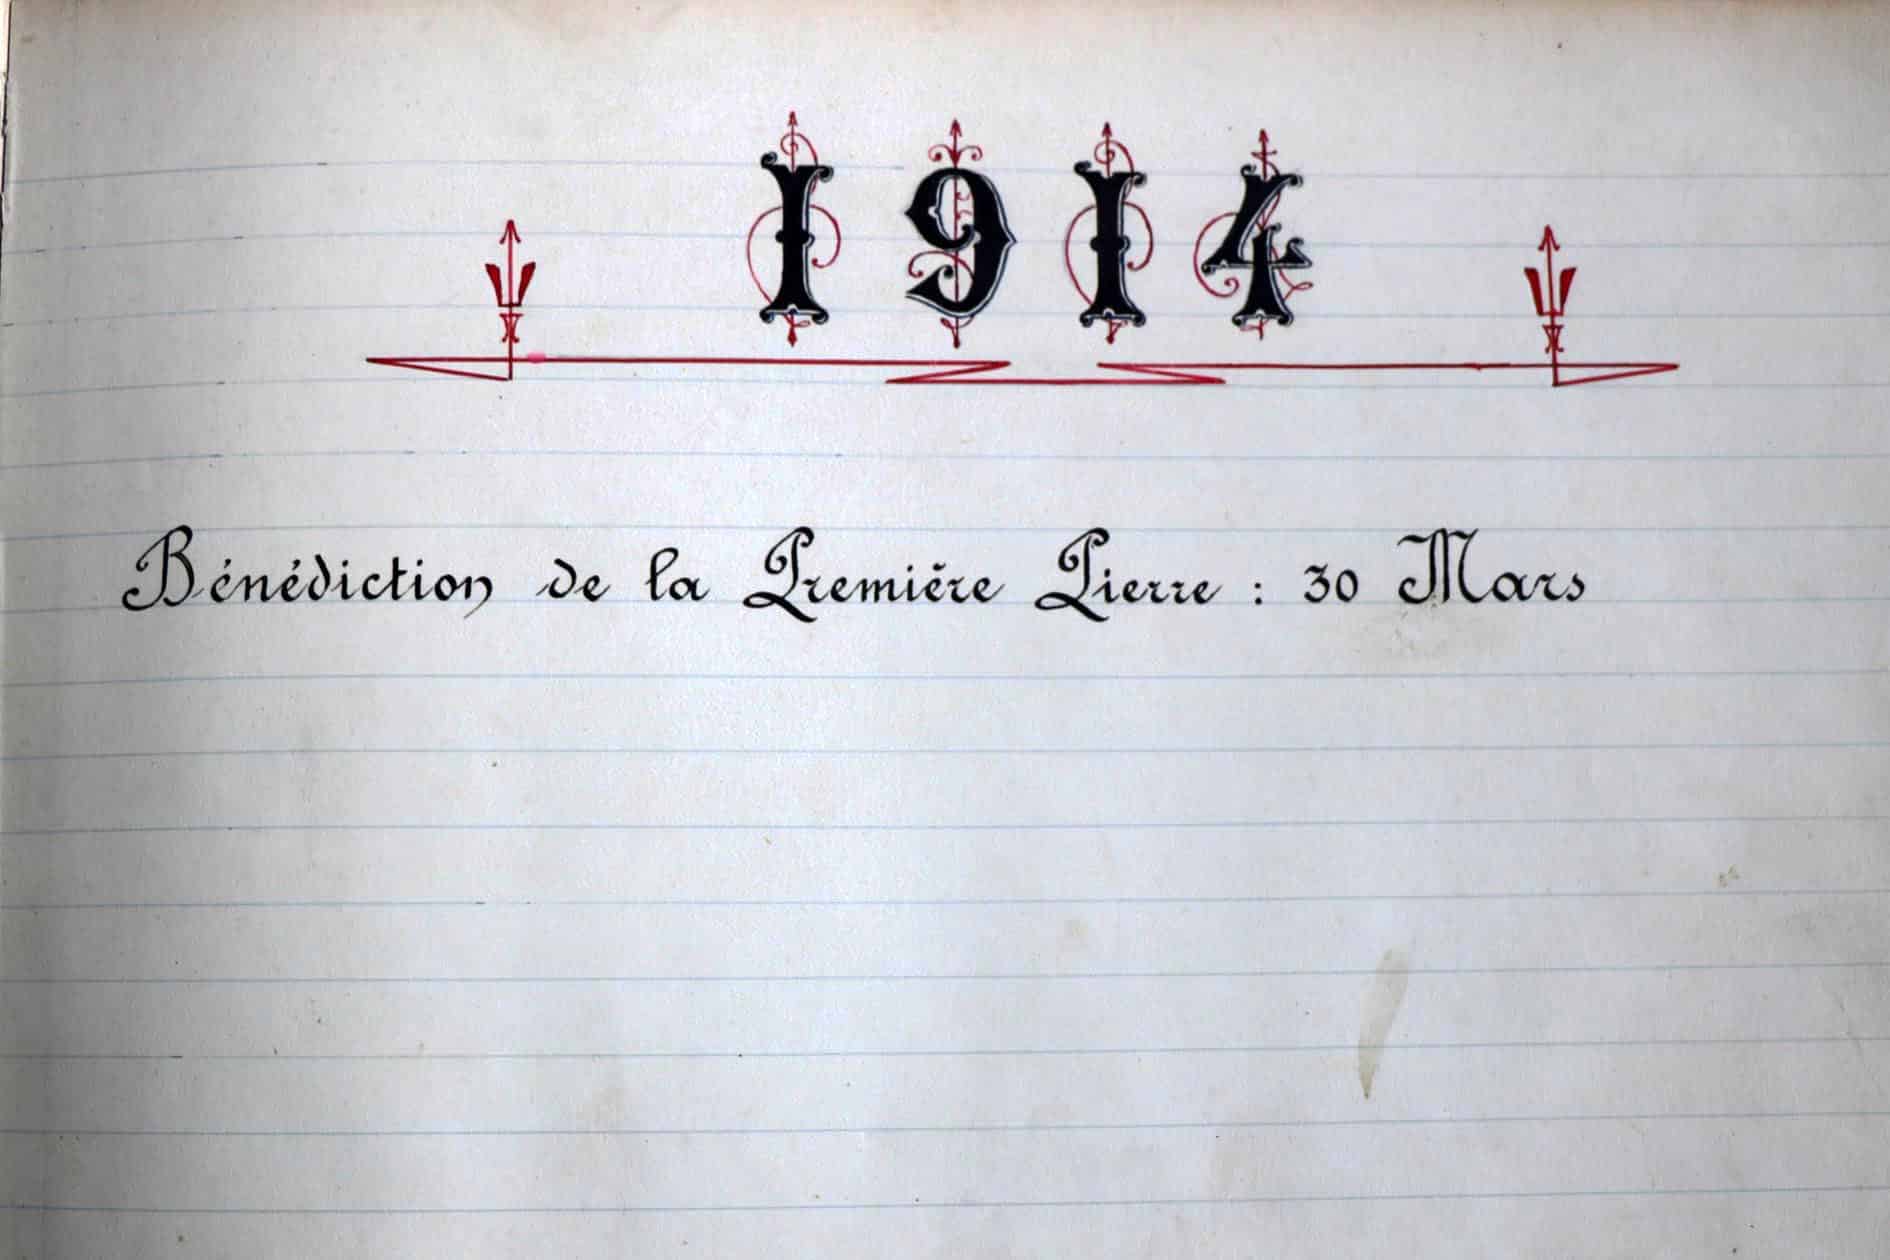 1914
Bénédiction de la Première Pierre : 30 Mars